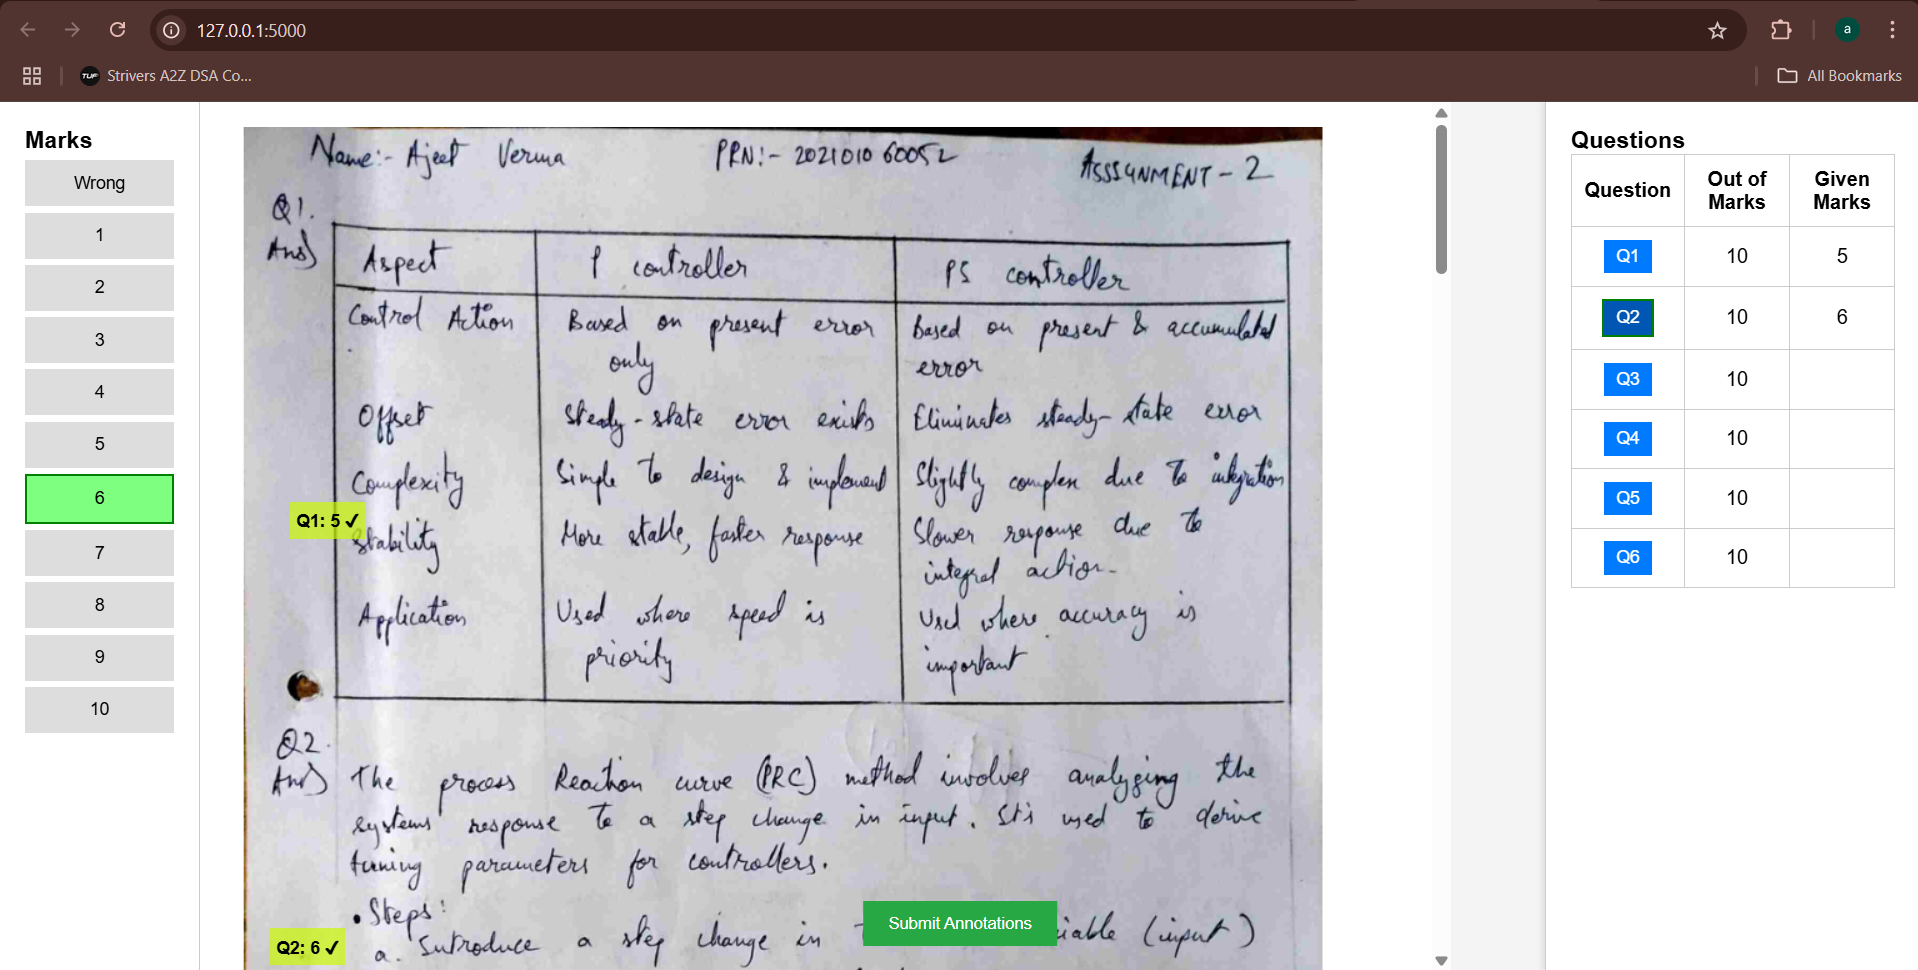 127.0.0.1:5000
a
TUF
Strivers A2Z DSA Co...
All Bookmarks
Marks
Wrong
1
2
3
4
5
6
7
8
9
10
Name:- Ajeet Verma PRN:- 202101060052 ASSSGNMENT - 2
Q1.
Ans)
Aspect P controller PS controller
Control Action Based on present error only Based on present & accumulated error
Offset Steady-state error exists Eliminates steady-state error
Complexity Simple to design & implement Slightly complex due to integration
Q1: 5 ✓
Stability More stable, faster response Slower response due to integral action.
Application Used where speed is priority Used where accuracy is important
Q2.
Ans) The process Reaction curve (PRC) method involves analyzing the
systems response to a step change in input. St's used to derive
tuning parameters for controllers.
• Steps:
a. Sutroduce a step change in iable (input)
Q2: 6 ✓
Submit Annotations
Questions
Question Out of Marks Given Marks
Q1 10 5
Q2 10 6
Q3 10
Q4 10
Q5 10
Q6 10